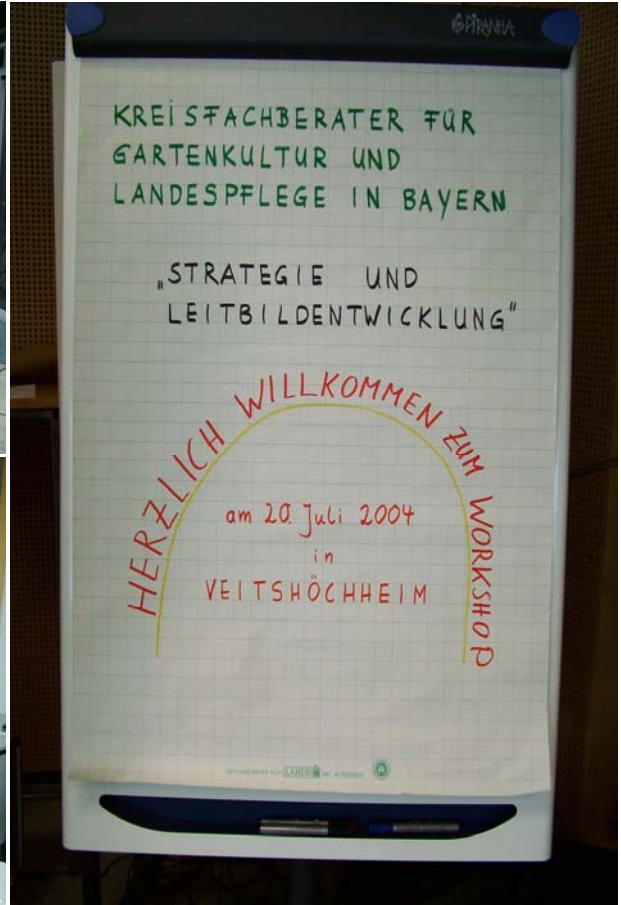 PIRANHA
KREISFACHBERATER FÜR
GARTENKULTUR UND
LANDESPFLEGE IN BAYERN
„STRATEGIE UND
LEITBILDENTWICKLUNG“
HERZLICH WILLKOMMEN ZUM WORKSHOP
am 20. Juli 2004
in
VEITSHÖCHHEIM
LANDRÉ